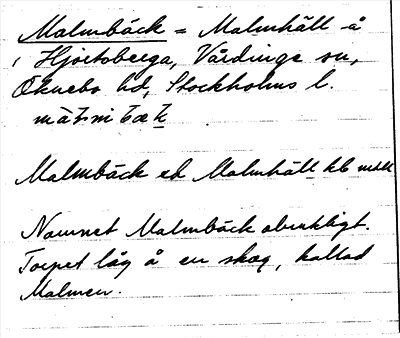 Malmbäck = Malmhäll å
Hjortoberga, Vårdinge sn,
Öknebo hd, Stockholms l.
Malmbäck el Malmhäll
Namnet Malmbäck obrukligt.
Torpet låg å en skog, kallad
Malmen.